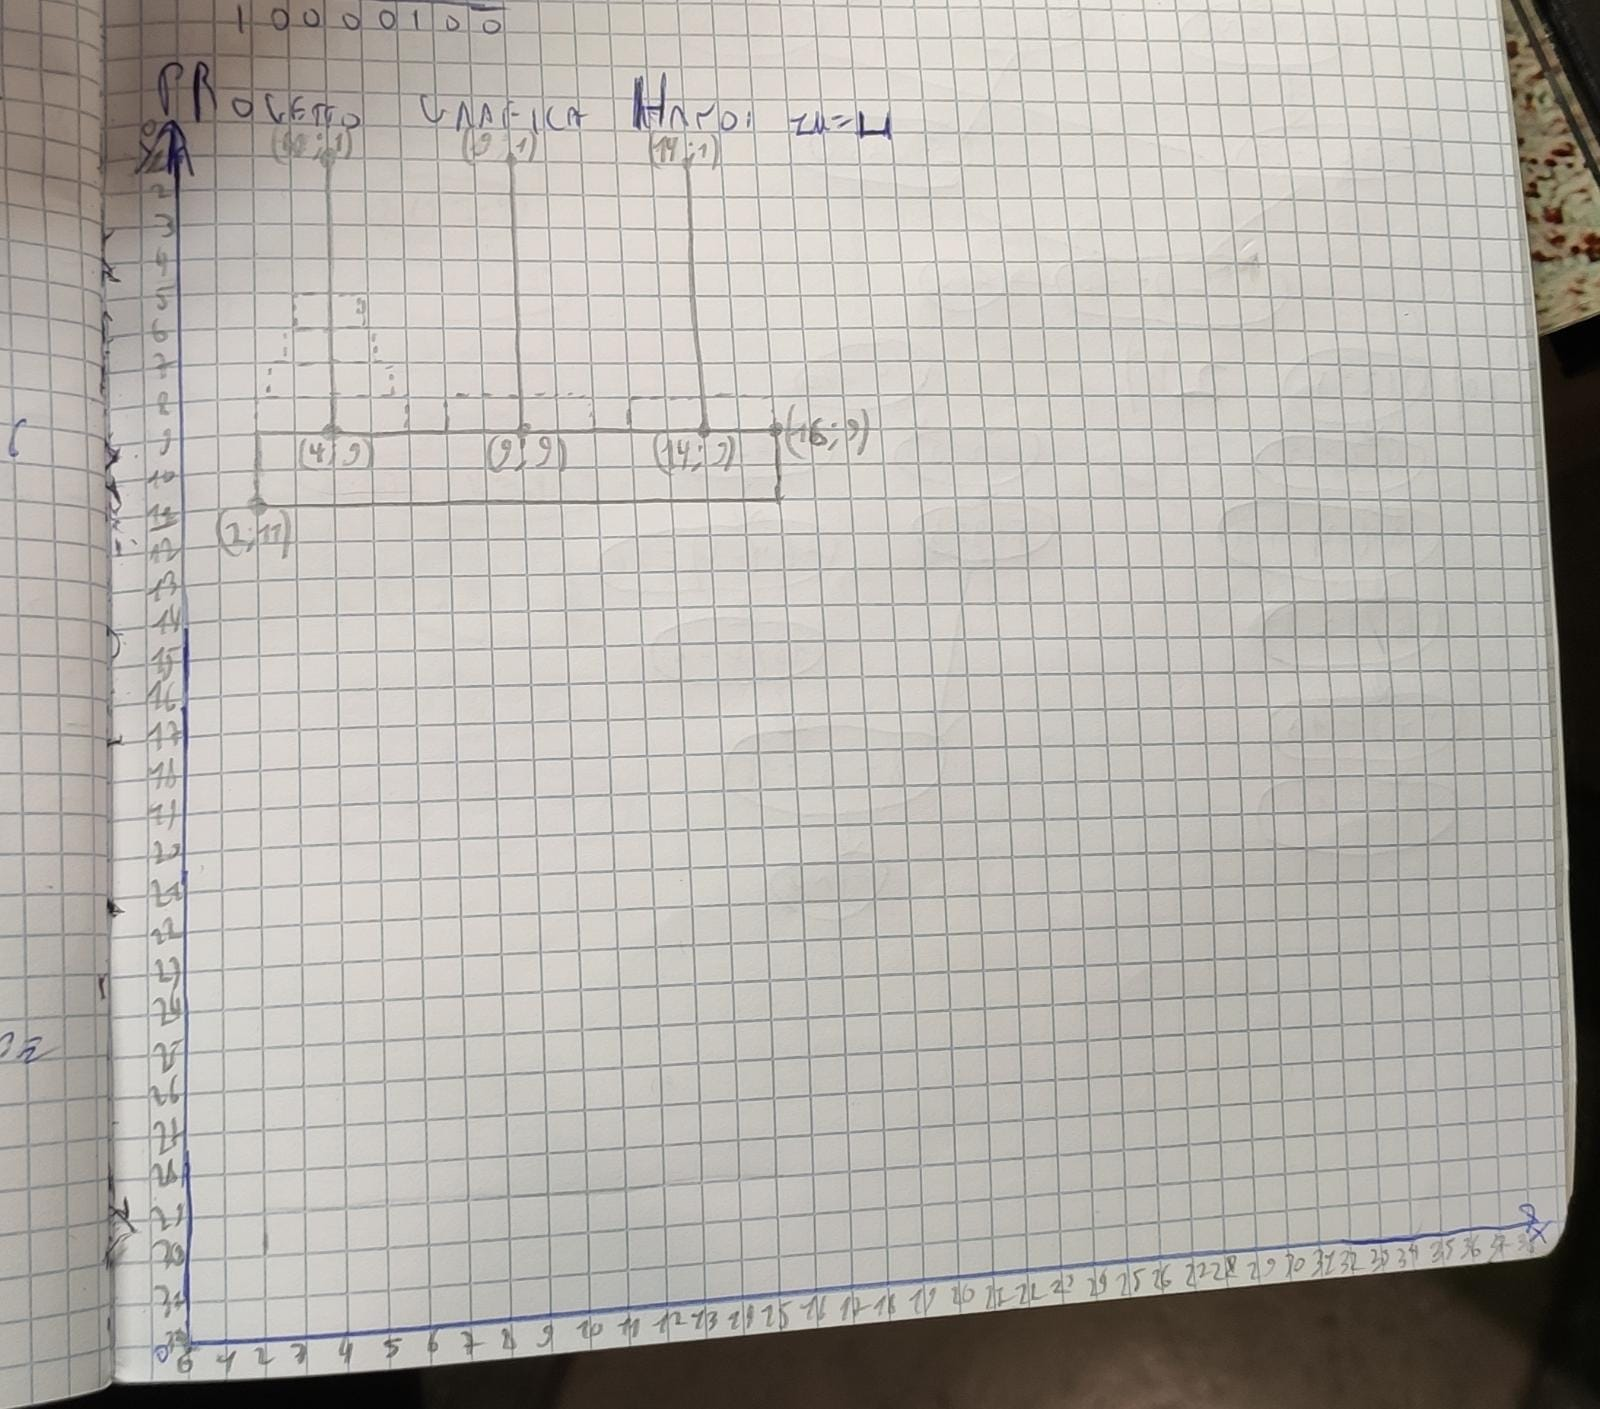 10000100
PROGETTO GRAFICA HANOI
(9;1) (14;1)
2
3
4
5
6
7
8
9 (4;9) (9;9) (14;9) (16;9)
10
11
(2;11)
12
13
14
15
16
17
18
19
20
21
22
23
24
25
26
27
28
29
30
31
X
0 1 2 3 4 5 6 7 8 9 10 11 12 13 14 15 16 17 18 19 20 21 22 23 24 25 26 27 28 29 30 31 32 33 34 35 36 37 38